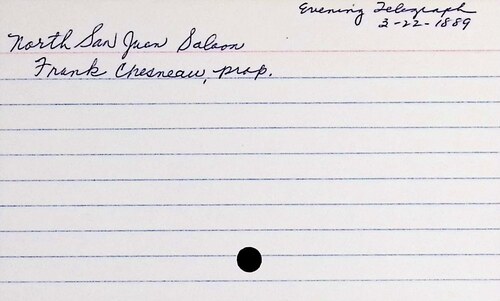 Evening Telegraph
3-22-1889
North San Juan Saloon
Frank Chesneau, prop.